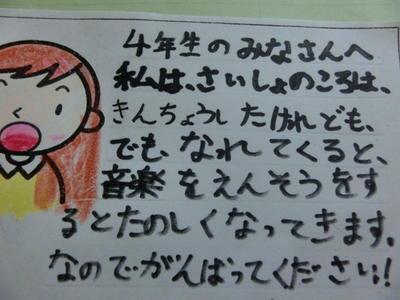 4年生のみなさんへ
私は、さいしょのころは、
きんちょうしたけれども、
でも、なれてくると、
音楽をえんそうをす
るとたのしくなってきます。
なのでがんばってください!